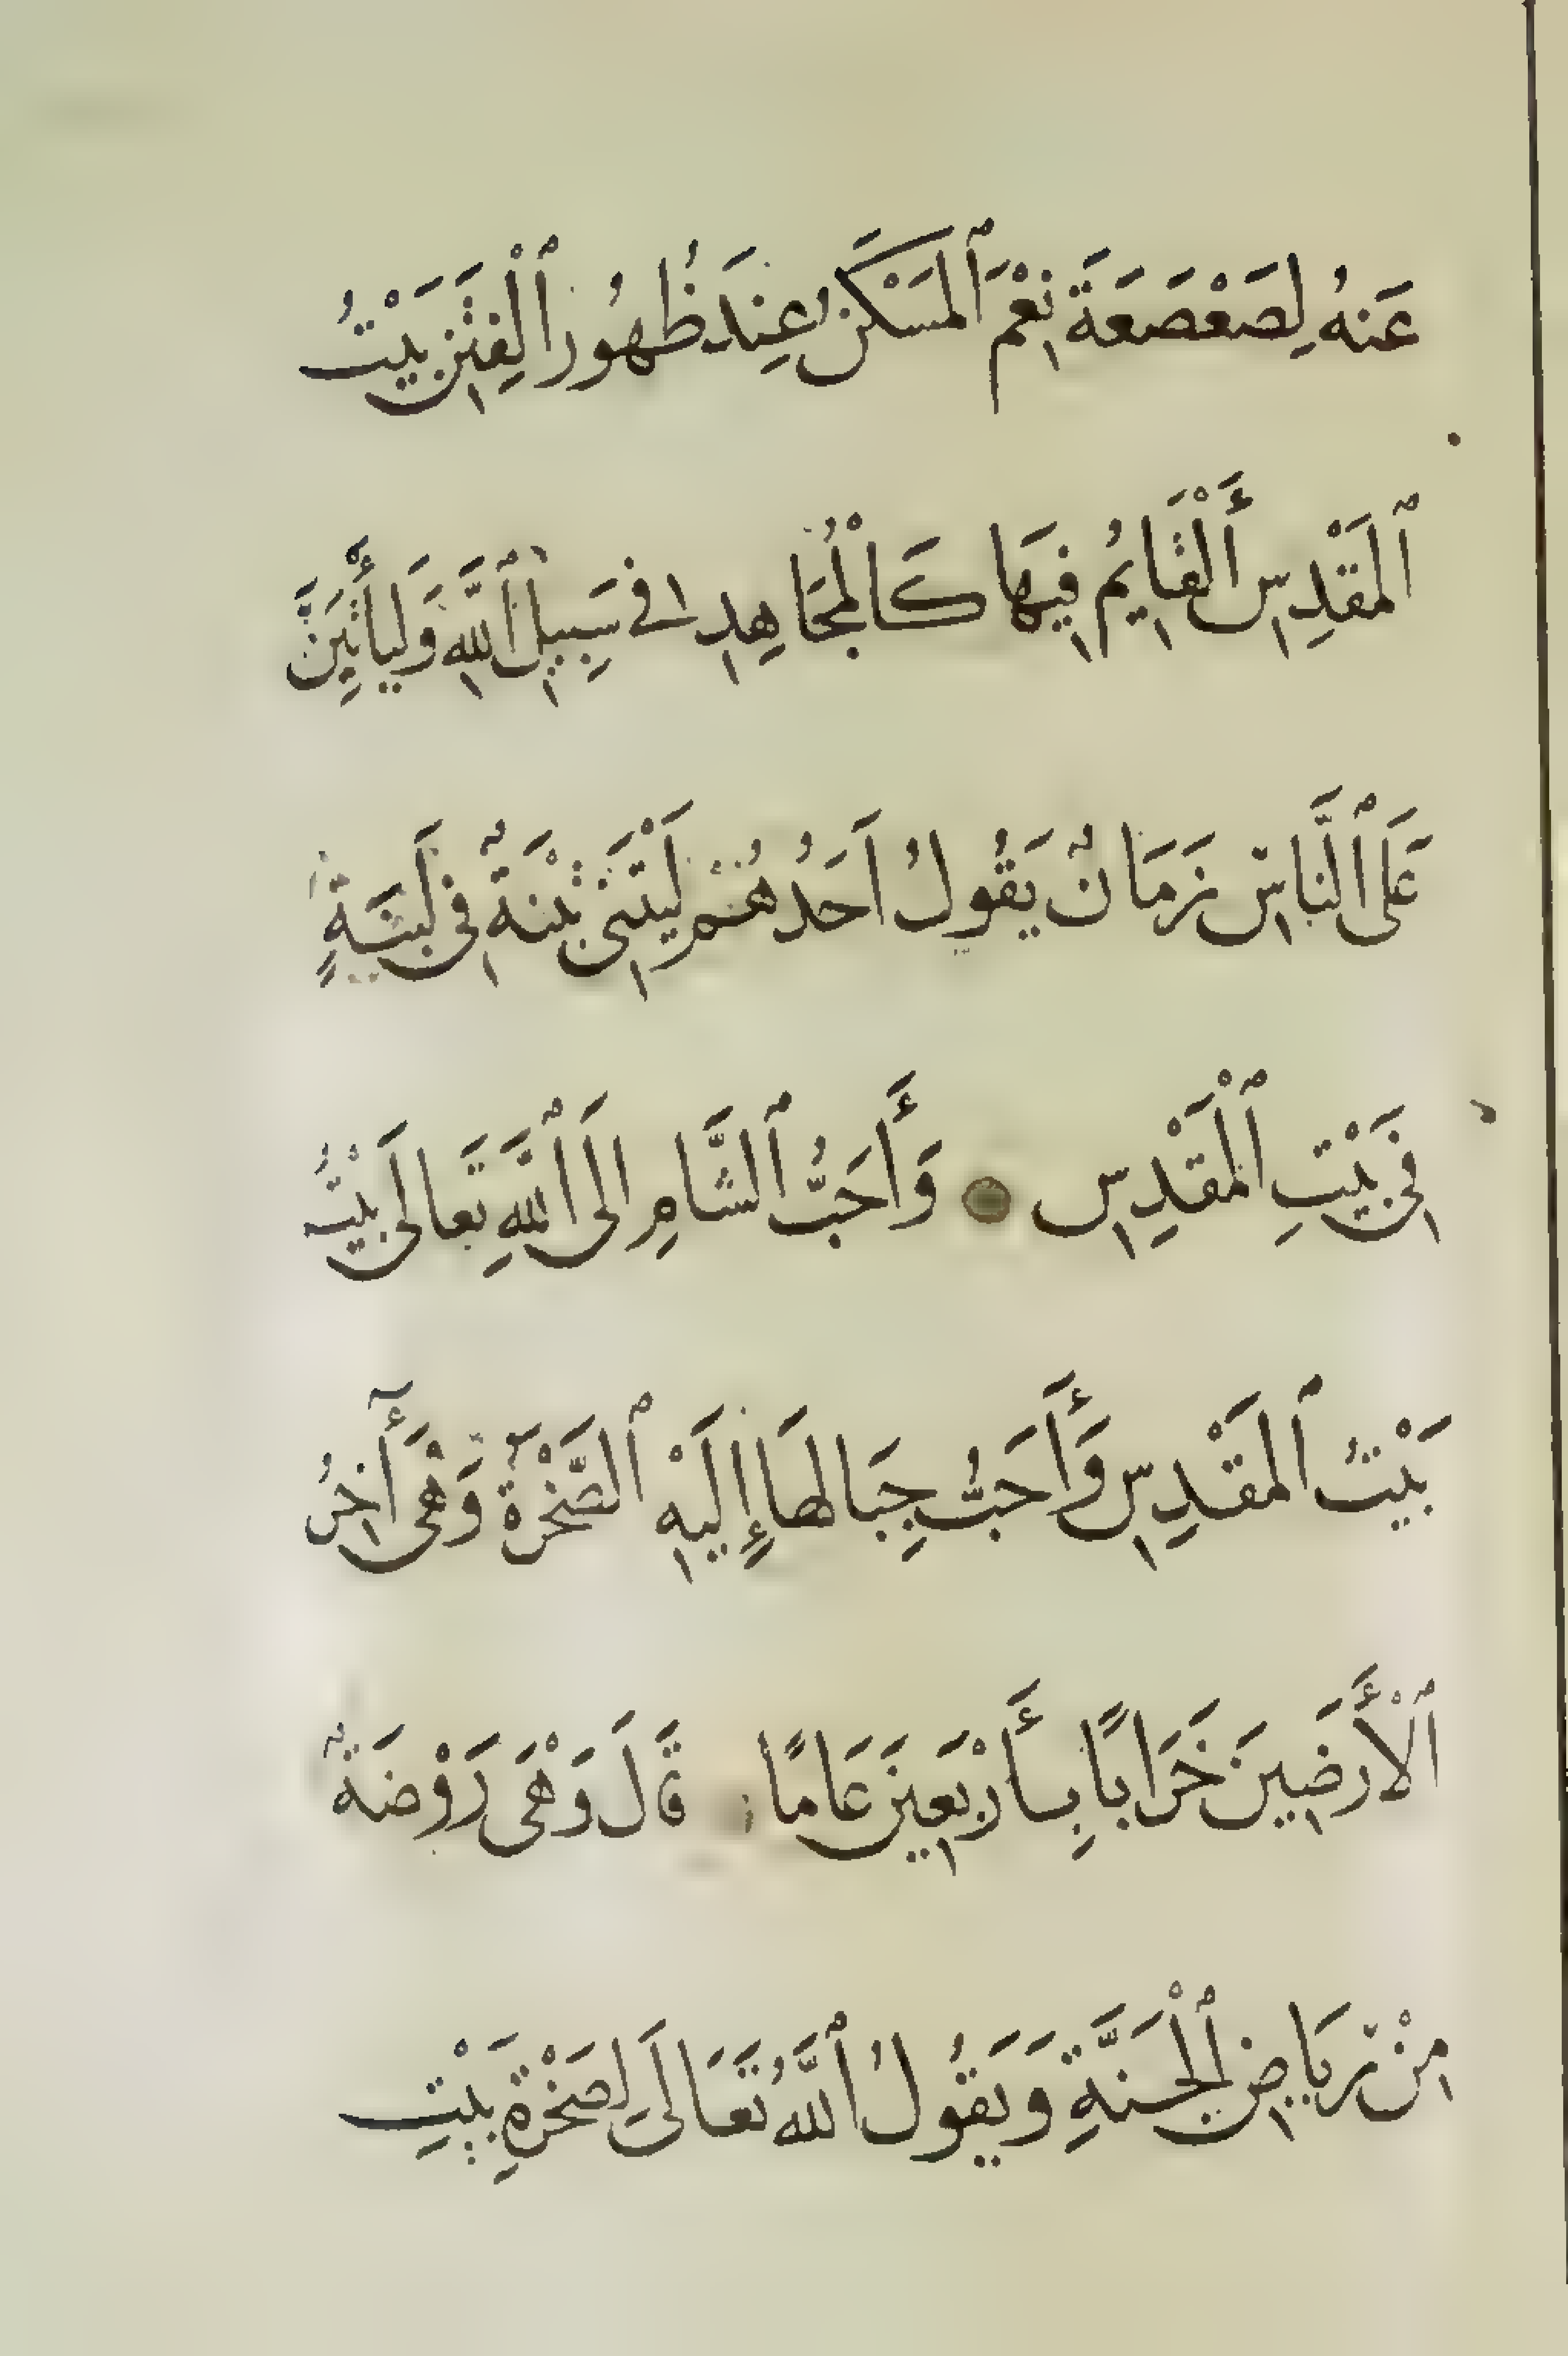 عَنهُ لِصَعْصَعَةَ نِعْمَ ٱلمَسْكَنُ عِندَ ظُهُورِ ٱلْفِتَنِ بَيْتُ
ٱلمَقْدِسِ أَلْقَايِمُ فِيهَا كَالْمُجَاهِدِ فى سَبِيلِ ٱللَّهِ وَلَيأْتِيَنَّ
عَلَى ٱلنَّاسِ زَمَانٌ يَقُولُ اَحَدُهُم لَيْتَنى تِبْنَةٌ فى لَبِنَةٍ
فى بَيْتِ ٱلْمَقْدِسِ وَأَحَبُّ ٱلشَّامِ الَى ٱللَّهِ تَعَالَى بَيْتُ
بَيْتُ ٱلمَقْدِسِ وَأَحَبُّ جِبَالهَا إِلَيْهِ ٱلصَّخْرَةُ وَهْىَ أٓخِرُ
ٱلْأَرَضِينَ خَرَابًا بِأَرْبَعِينَ عَامًا قَالَ وَهْىَ رَوْضَةٌ
مِنْ رِيَاضِ ٱلْجَنَّةِ وَيَقُولُ ٱللَّهُ تَعَالَى لِصَخْرَةِ بَيْتِ